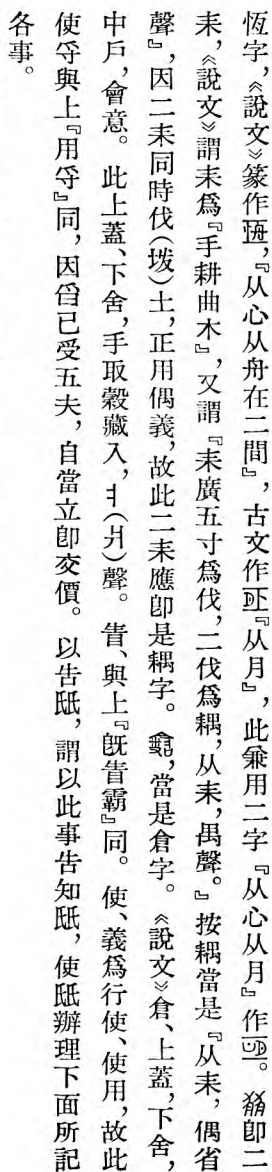 恆字，《說文》篆作，『从心从舟在二間』，古文作『从月』，此兼用二字『从心从月』作。即二
耒，《說文》謂耒爲『手耕曲木』，又謂『耒廣五寸爲伐，二伐爲耦，从耒，禺聲。』按耦當是『从耒，偶省
聲』，因二耒同時伐（墢）土，正用偶義，故此二耒應即是耦字。，當是倉字。《說文》倉、上蓋，下舍，
中戶，會意。此上蓋、下舍，手取穀藏入，（爿）聲。眚、與上『旣眚霸』同。使、義爲行使、使用，故此
使寽與上『用寽』同，因曶已受五夫，自當立卽交價。以告䟗，謂以此事告知䟗，使䟗辦理下面所記
各事。